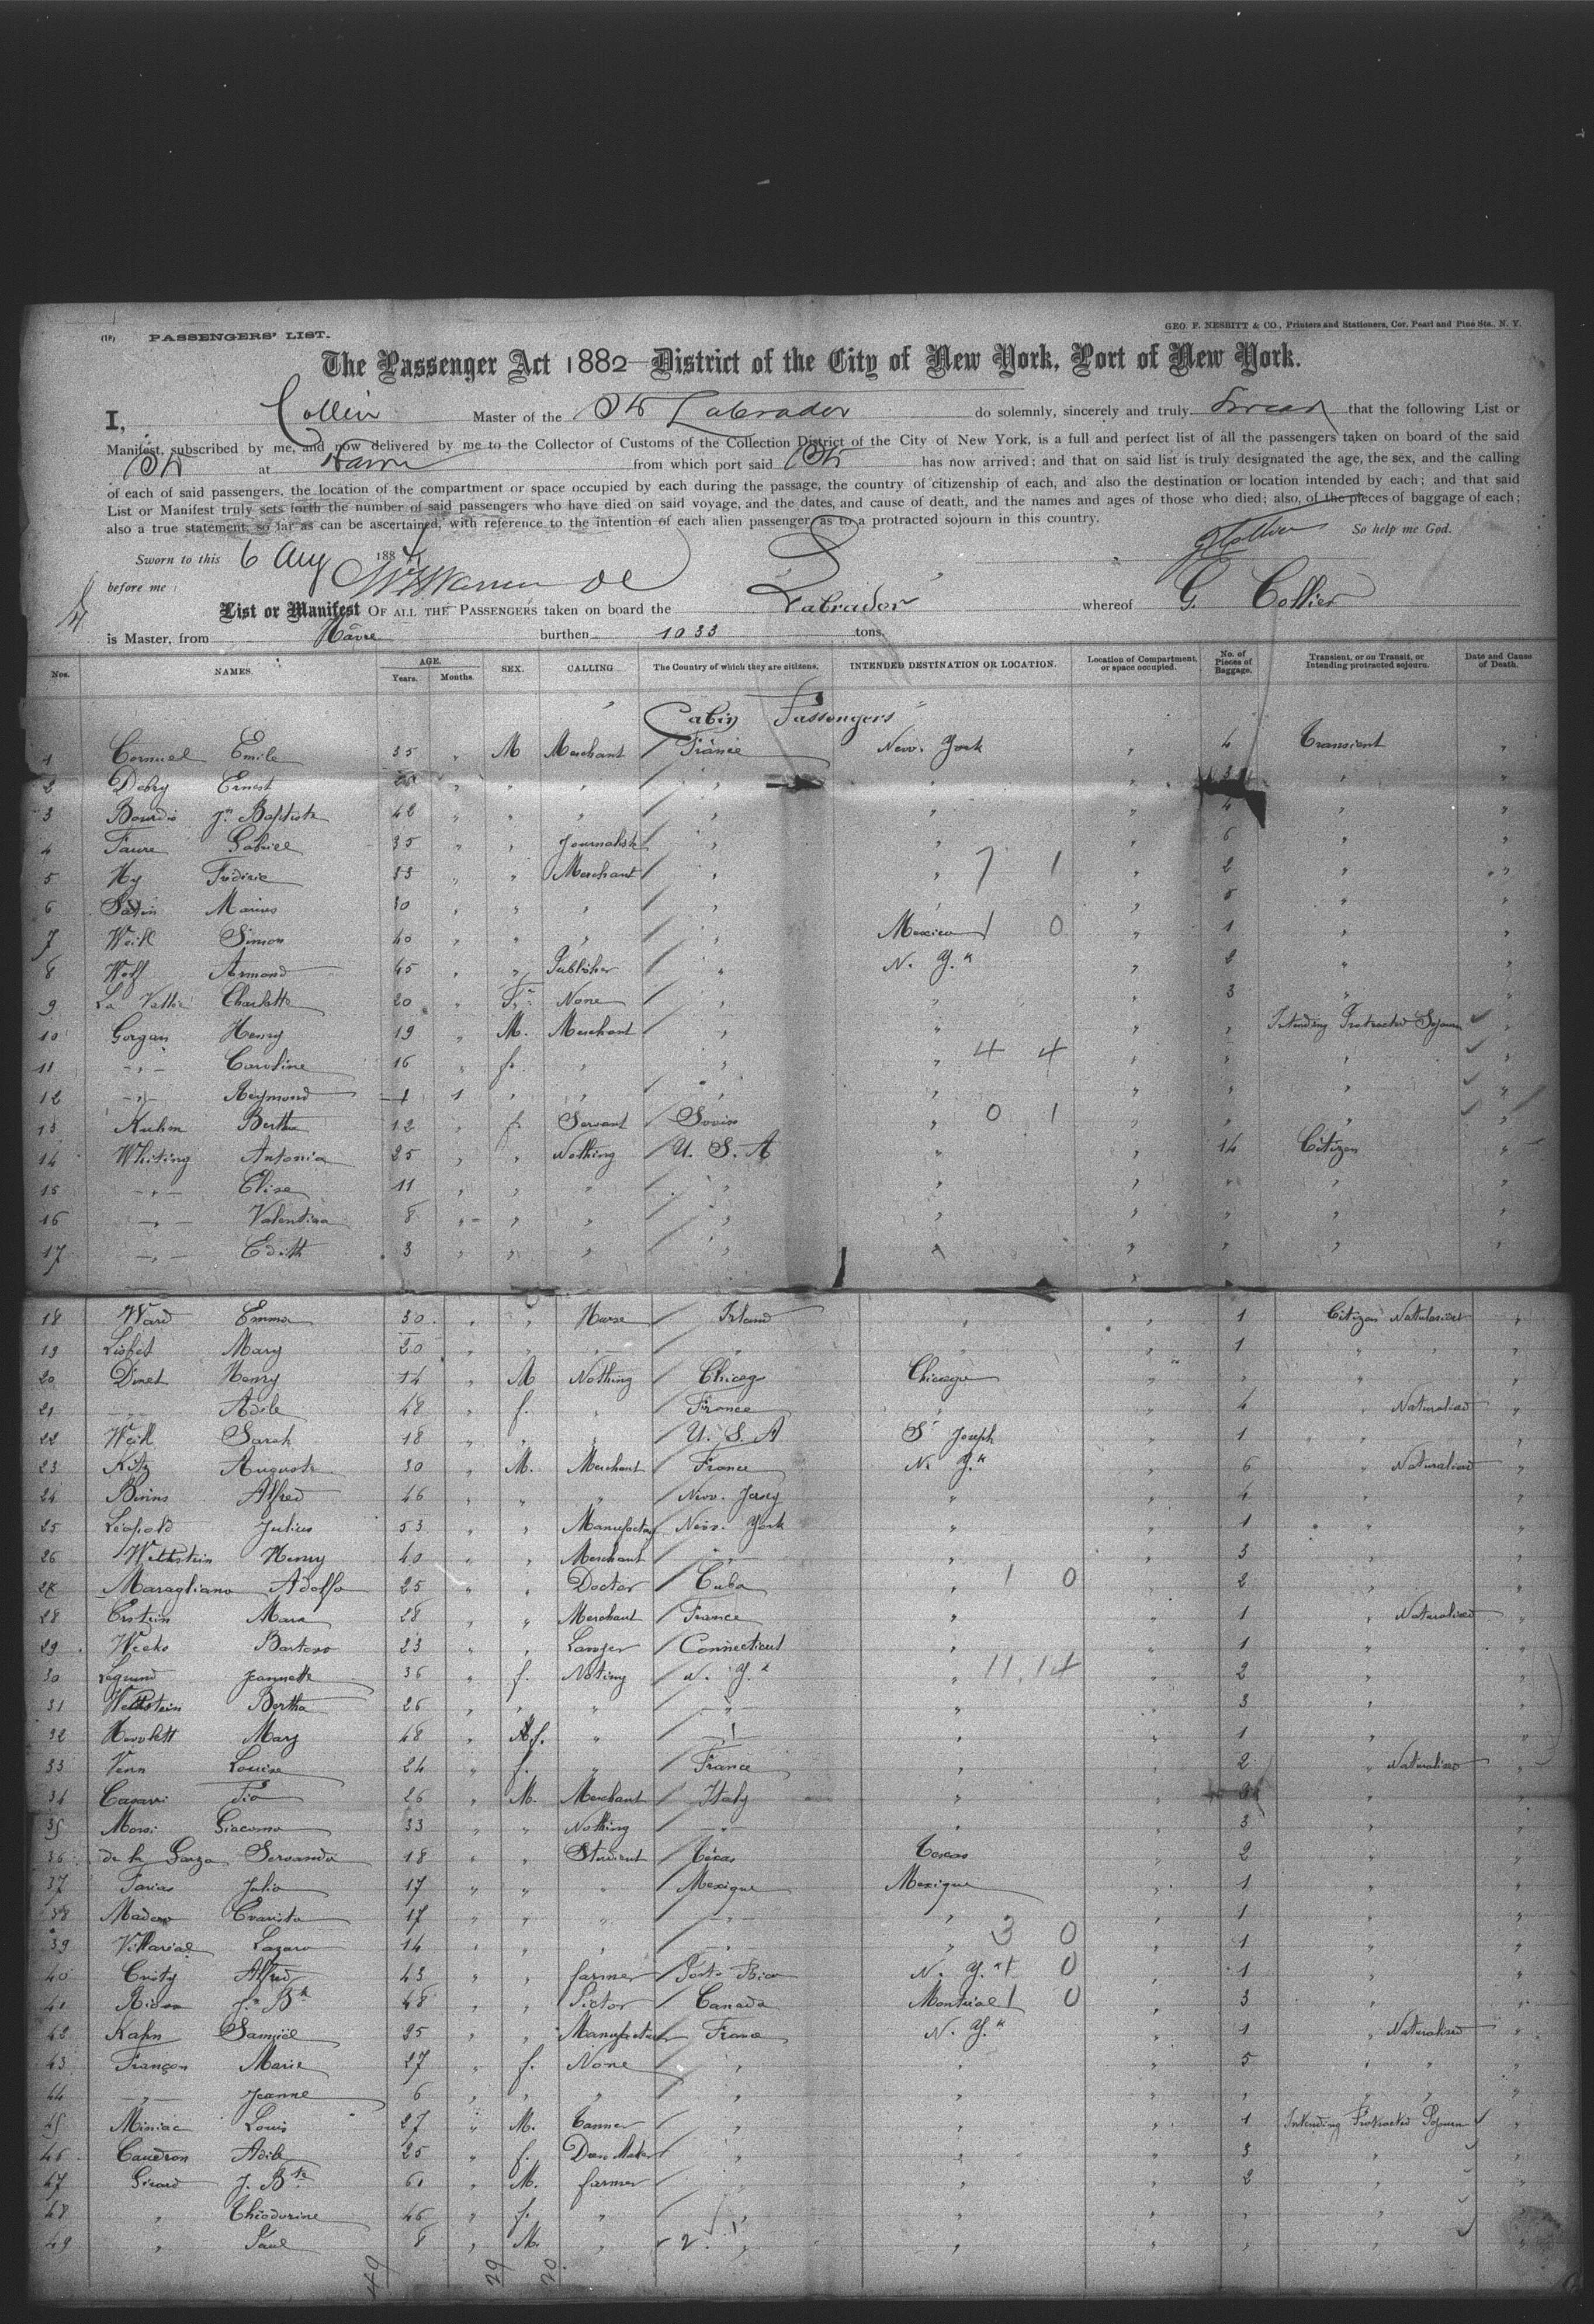 (19) PASSENGERS' LIST.
GEO. F. NESBITT & CO., Printers and Stationers, Cor. Pearl and Pine Sts., N. Y.
The Passenger Act 1882 District of the City of New York, Port of New York.
I, Collier Master of the Str Labrador do solemnly, sincerely and truly swear that the following List or
Manifest, subscribed by me, and now delivered by me to the Collector of Customs of the Collection District of the City of New York, is a full and perfect list of all the passengers taken on board of the said
Str at Havre from which port said Str has now arrived; and that on said list is truly designated the age, the sex, and the calling
of each of said passengers, the location of the compartment or space occupied by each during the passage, the country of citizenship of each, and also the destination or location intended by each; and that said
List or Manifest truly sets forth the number of said passengers who have died on said voyage, and the dates, and cause of death, and the names and ages of those who died; also, of the pieces of baggage of each;
also a true statement, so far as can be ascertained, with reference to the intention of each alien passenger, as to a protracted sojourn in this country.
So help me God.
Sworn to this 6 Aug 188
before me
List or Manifest OF ALL THE PASSENGERS taken on board the Labrador whereof G. Collier
is Master, from Havre burthen 1033 tons.
Nos. NAMES. AGE. Years. Months. SEX. CALLING. The Country of which they are citizens. INTENDED DESTINATION OR LOCATION. Location of Compartment, or space occupied. No. of Pieces of Baggage. Transient, or on Transit, or Intending protracted sojourn. Date and Cause of Death.
Cabin Passengers
1 Cornuel Emile 35 " M Merchant / France New. York " 4 Transient "
2 Debry Ernest " " " / " " " " "
3 Bourdis Jn Baptiste 42 " " " / " " " 4 " "
4 Faure Gabriel 35 " " Journalist / " " " 6 " "
5 Hy Frédéric 33 " " Merchant / " " 7 1 " 2 " "
6 Marius 30 " " " / " " " 5 " "
7 Weill Simon 40 " " " / " Mexico 1 0 " 1 " "
8 Wolf Armond 45 " " Publisher / " N. Y.k " 2 " "
9 La Charlotte 20 " F. None / " " " 3 " "
10 Gorgan Henry 19 " M. Merchant / " " " " Intending Protracted Sojourn "
11 -"- Caroline 16 " f. " / " " 4 4 " " " "
12 -"- Reymond 1 " " / " " " " "
13 Kuhm Bertha 12 " f. Servant / Swiss " 0 1 " " " "
14 Whiting Antonia 25 " " Nothing / U. S. A " " 14 Citizen "
15 -"- Elise 11 " " " / " " " " " "
16 -"- Valentina 8 " " " / " " " " " "
17 -"- Edith 3 " " " / " " " " " "
18 Ward Emma 30 " " Nurse / Irland " " 1 Citizen Naturalised "
19 Mary 20 " " " / " " " 1 " " "
20 Dinet Henry 14 " M Nothing / Chicago Chicago " " " "
21 -"- Adele 48 " f. " / France " " 4 " Naturalised "
22 Weill Sarah 18 " " " / U. S. A St Joseph " 1 " "
23 Kitz Auguste 30 " M. Merchant / France N. Y.k " 6 " Naturalised "
24 Binns Alfred 46 " " " / New. Jersey " " 4 " "
25 Léopold Julius 53 " " Manufactory / New. York " " 1 " "
26 Henry 40 " " Merchant / -"- " " 3 " "
27 Maragliano Adolfo 25 " " Doctor / Cuba " 1 0 " 2 " "
28 Erstein Marx 28 " " Merchant / France " " 1 " Naturalised "
29 Weeks 23 " " Lawyer / Connecticut " " 1 " "
30 Jeannette 36 " f. Noting / N. Y.k " 11 14 " 2 " "
31 Bertha 26 " " " / -"- " " 3 " "
32 Hewlett Mary 48 " f. " / " " " 1 " "
33 Venn Louise 24 " f. " / France " " 2 " Naturalised "
34 Casavri Tio 26 " M. Merchant / Italy " " " "
35 Mossi Giacomo 33 " " Nothing / -"- " " 3 " "
36 de la Garza Servando 18 " " Student / Texas Texas " 2 " "
37 Farias Julio 17 " " " / Mexique Mexique " 1 " "
38 Madero Evaristo 17 " " " / -"- " " 1 " "
39 Villarial Lazaro 14 " " " / -"- " 3 0 " 1 " "
40 Cristy Alfred 43 " " farmer / Porto Rico N. Y.k 1 0 " 1 " "
41 J.n B.te 48 " " / Canada Montréal 1 0 " 3 " "
42 Kahn Samuel 25 " " Manufacturer / France N. Y.k " 1 " Naturalised "
43 Françon Marie 27 " f. None / " " " 5 " " "
44 -"- Jeanne 6 " " " / " " " " " " "
45 Miniac Louis 27 " M. Tanner / " " " 1 Intending Protracted Sojourn "
46 Caudron Adile 25 " f. Dress Maker / " " " 3 " "
47 Girard J. B.te 61 " M. farmer / " " " 2 " "
48 " Théodorine 46 " f. " / " " " " " "
49 " Paul 8 " M. " / " " " " " "
49 29 20